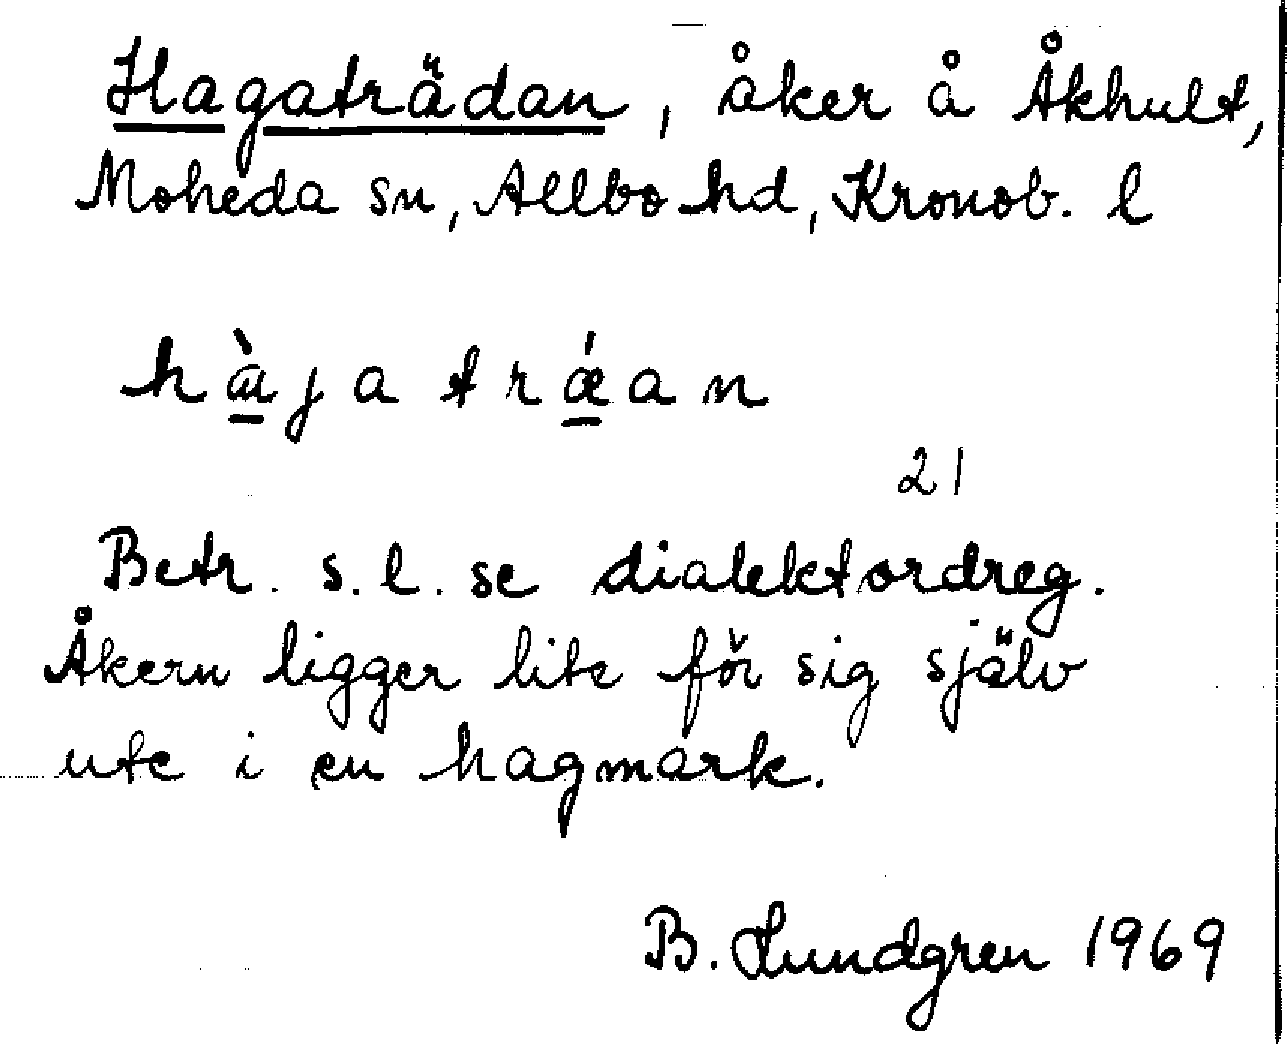 Hagaträdan, åker å Åkhult,
Moheda sn, Allbo hd, Kronob. l
hàja tráéan
21
Betr. s.l. se dialektordreg.
Åkern ligger lite för sig själv
ute i en hagmark.
B. Lundgren 1969